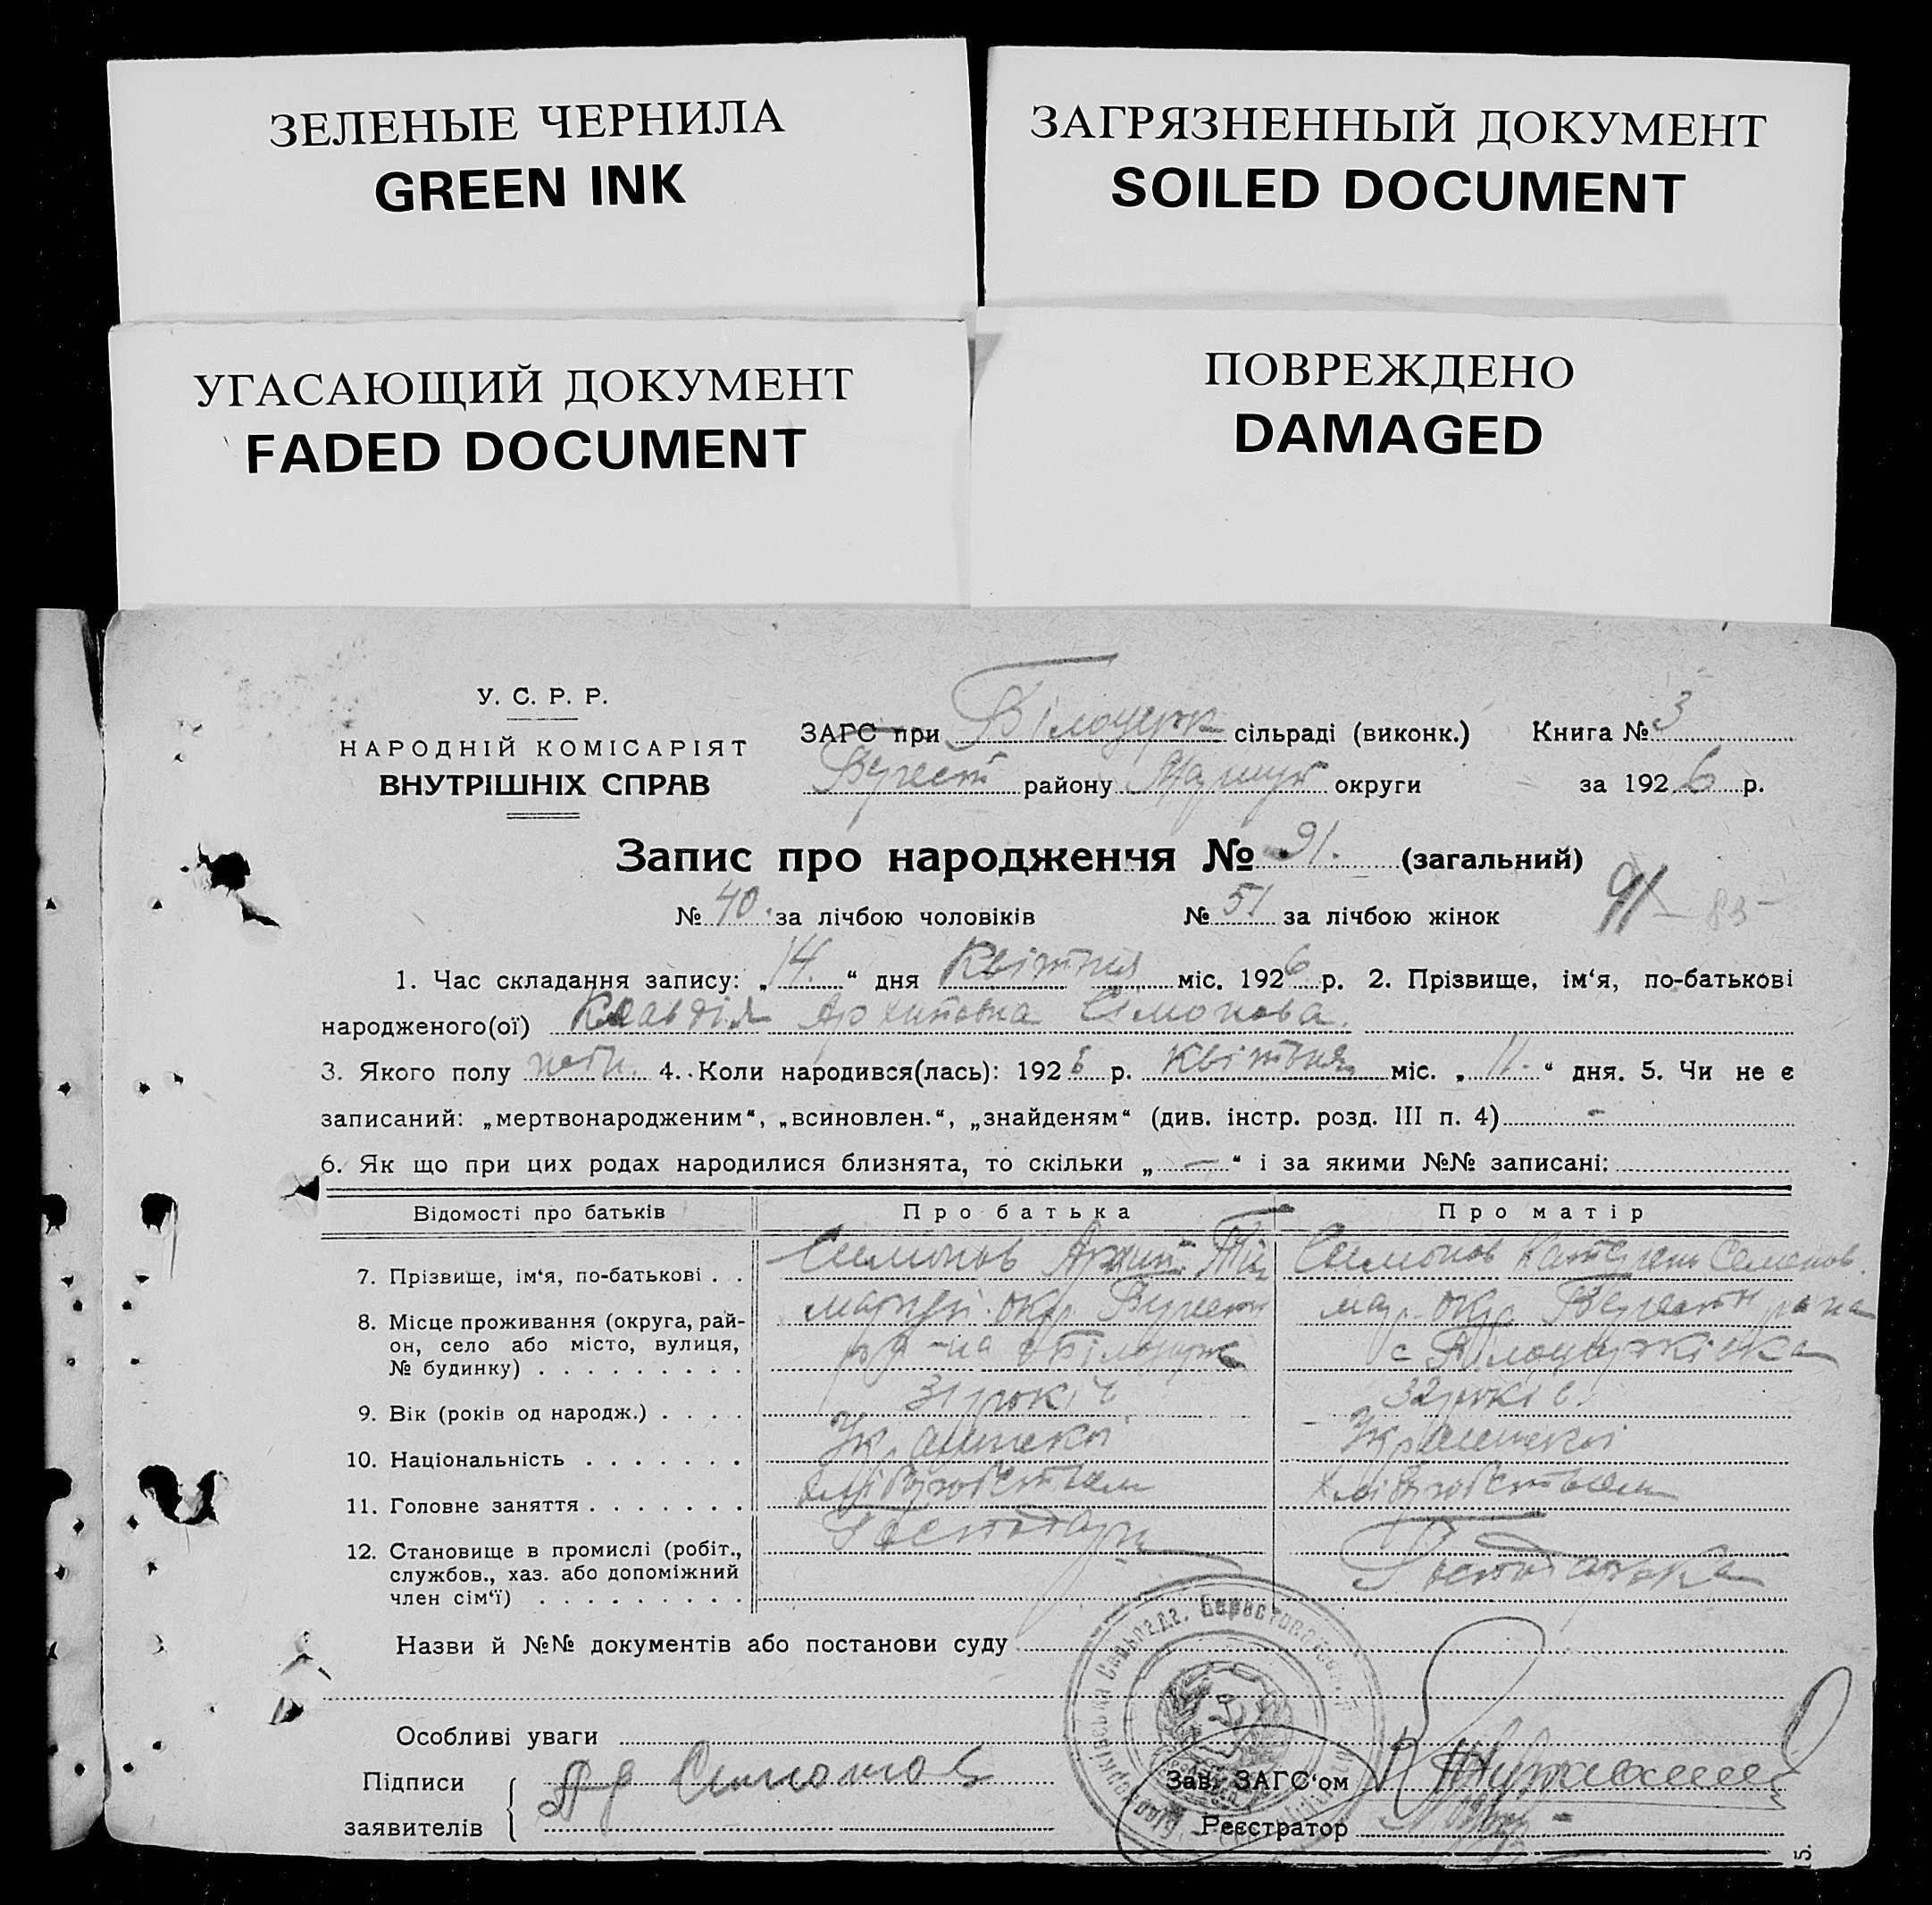 ЗЕЛЕНЫЕ ЧЕРНИЛА
GREEN INK
ЗАГРЯЗНЕННЫЙ ДОКУМЕНТ
SOILED DOCUMENT
УГАСАЮЩИЙ ДОКУМЕНТ
FADED DOCUMENT
ПОВРЕЖДЕНО
DAMAGED
У. С. Р. Р.
НАРОДНІЙ КОМІСАРІЯТ
ВНУТРІШНІХ СПРАВ
ЗАГС при Білоцерк сільраді (виконк.) Книга № 3
району округи за 1926 р.
Запис про народженчя № 91. (загальний)
№ 40. за лічбою чоловіків № 51 за лічбою жінок 91 83
1. Час складання запису: „14.“ дня Квітня міс. 1926 р. 2. Прізвище, ім‘я, по-батькові
народженого(ої) Клавдія Архиповна Сімонова.
3. Якого полу 4. Коли народився(лась): 1926 р. Квітня міс. „11.“ дня. 5. Чи не є
записаний: „мертвонародженим“, „всиновлен.“, „знайденям“ (див. інстр. розд. III п. 4) -
6. Як що при цих родах народилися близнята, то скільки „—“ і за якими №№ записані:
Відомості про батьків Про батька Про матір
7. Прізвище, ім‘я, по-батькові . . Симонов Архип Симонов Семенов.
8. Місце проживання (округа, рай- округ округ
он, село або місто, вулиця, р-на с Білоцерківка
№ будинку)
9. Вік (років од народж.) . . . . 31 років 32 років
10. Національність . . . . . . . Українські Українські
11. Головне заняття . . . . . . . хліборобством хліборобством
12. Становище в промислі (робіт., Господар Господарка
службов., хаз. або допоміжний
член сім‘ї) . . . . . . . . .
Назви й №№ документів або постанови суду
Особливі уваги
Підписи Симонов Зав. ЗАГС‘ом
заявителів Реєстратор